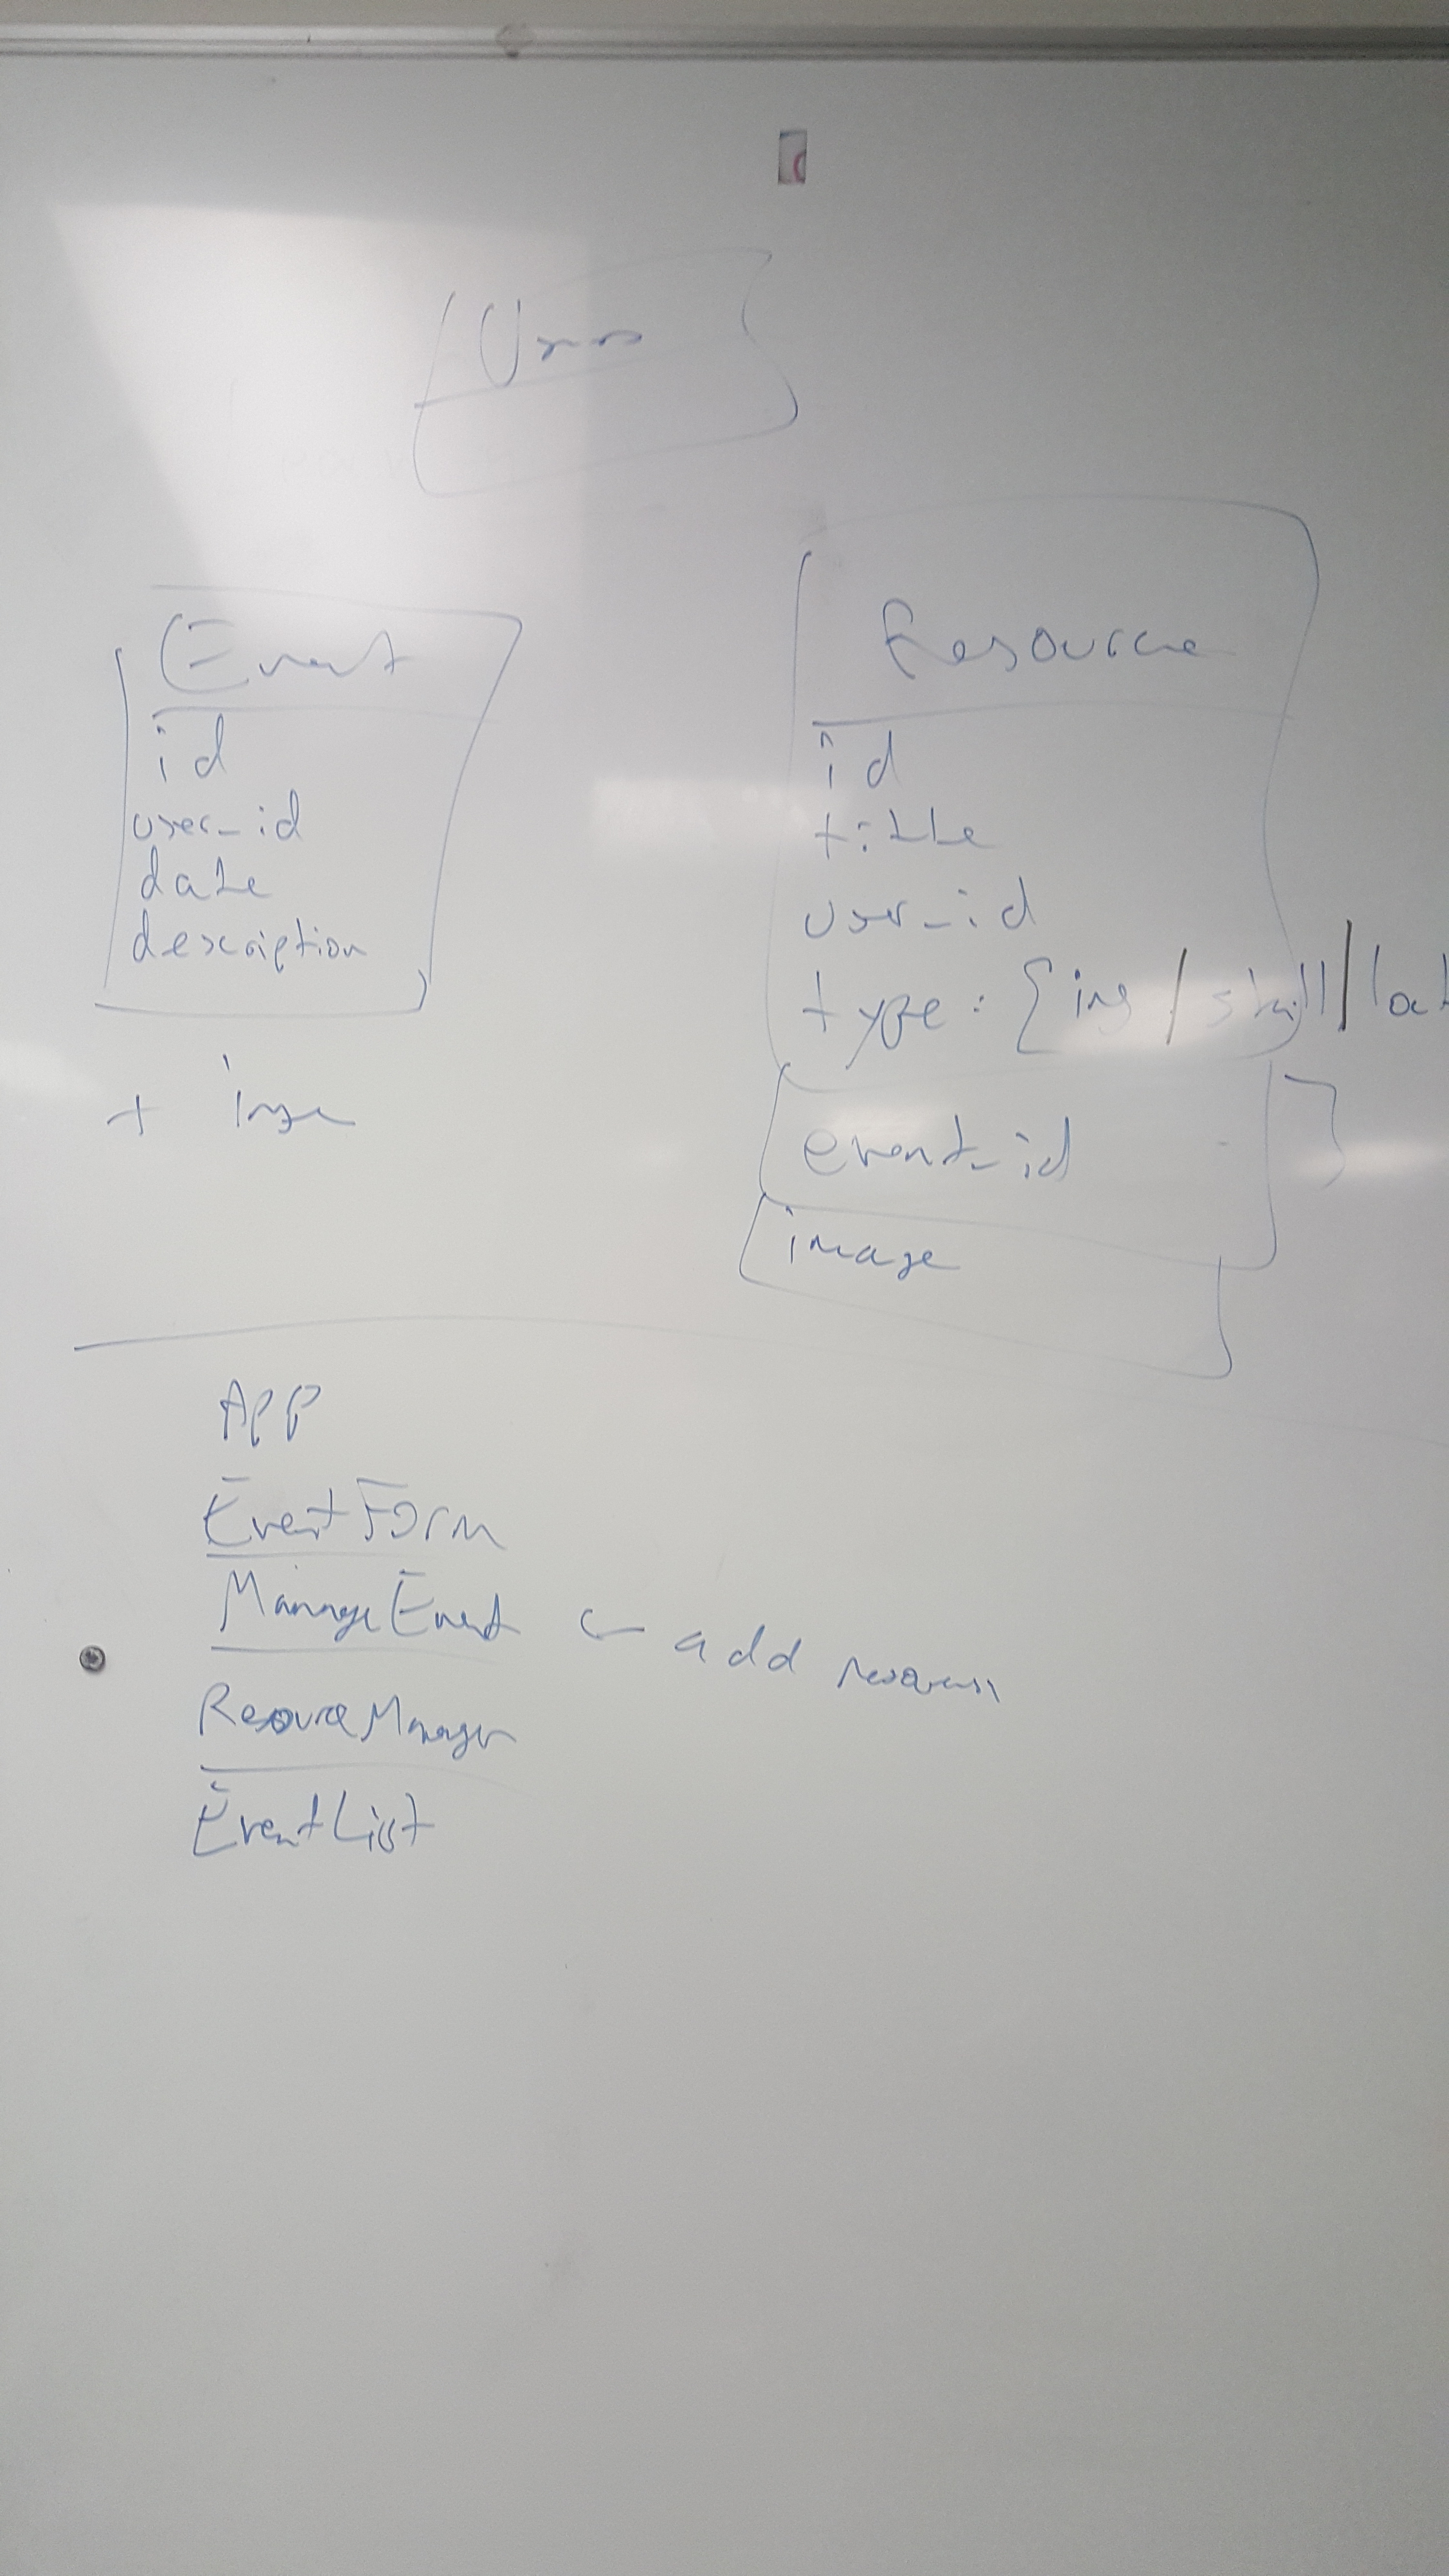 Users
Event
id
user_id
date
description
+ image
Resource
id
title
user_id
type: { ing / skill / loc
event_id
image
App
EventForm
ManageEvent ← add resources
ResourceManager
EventList